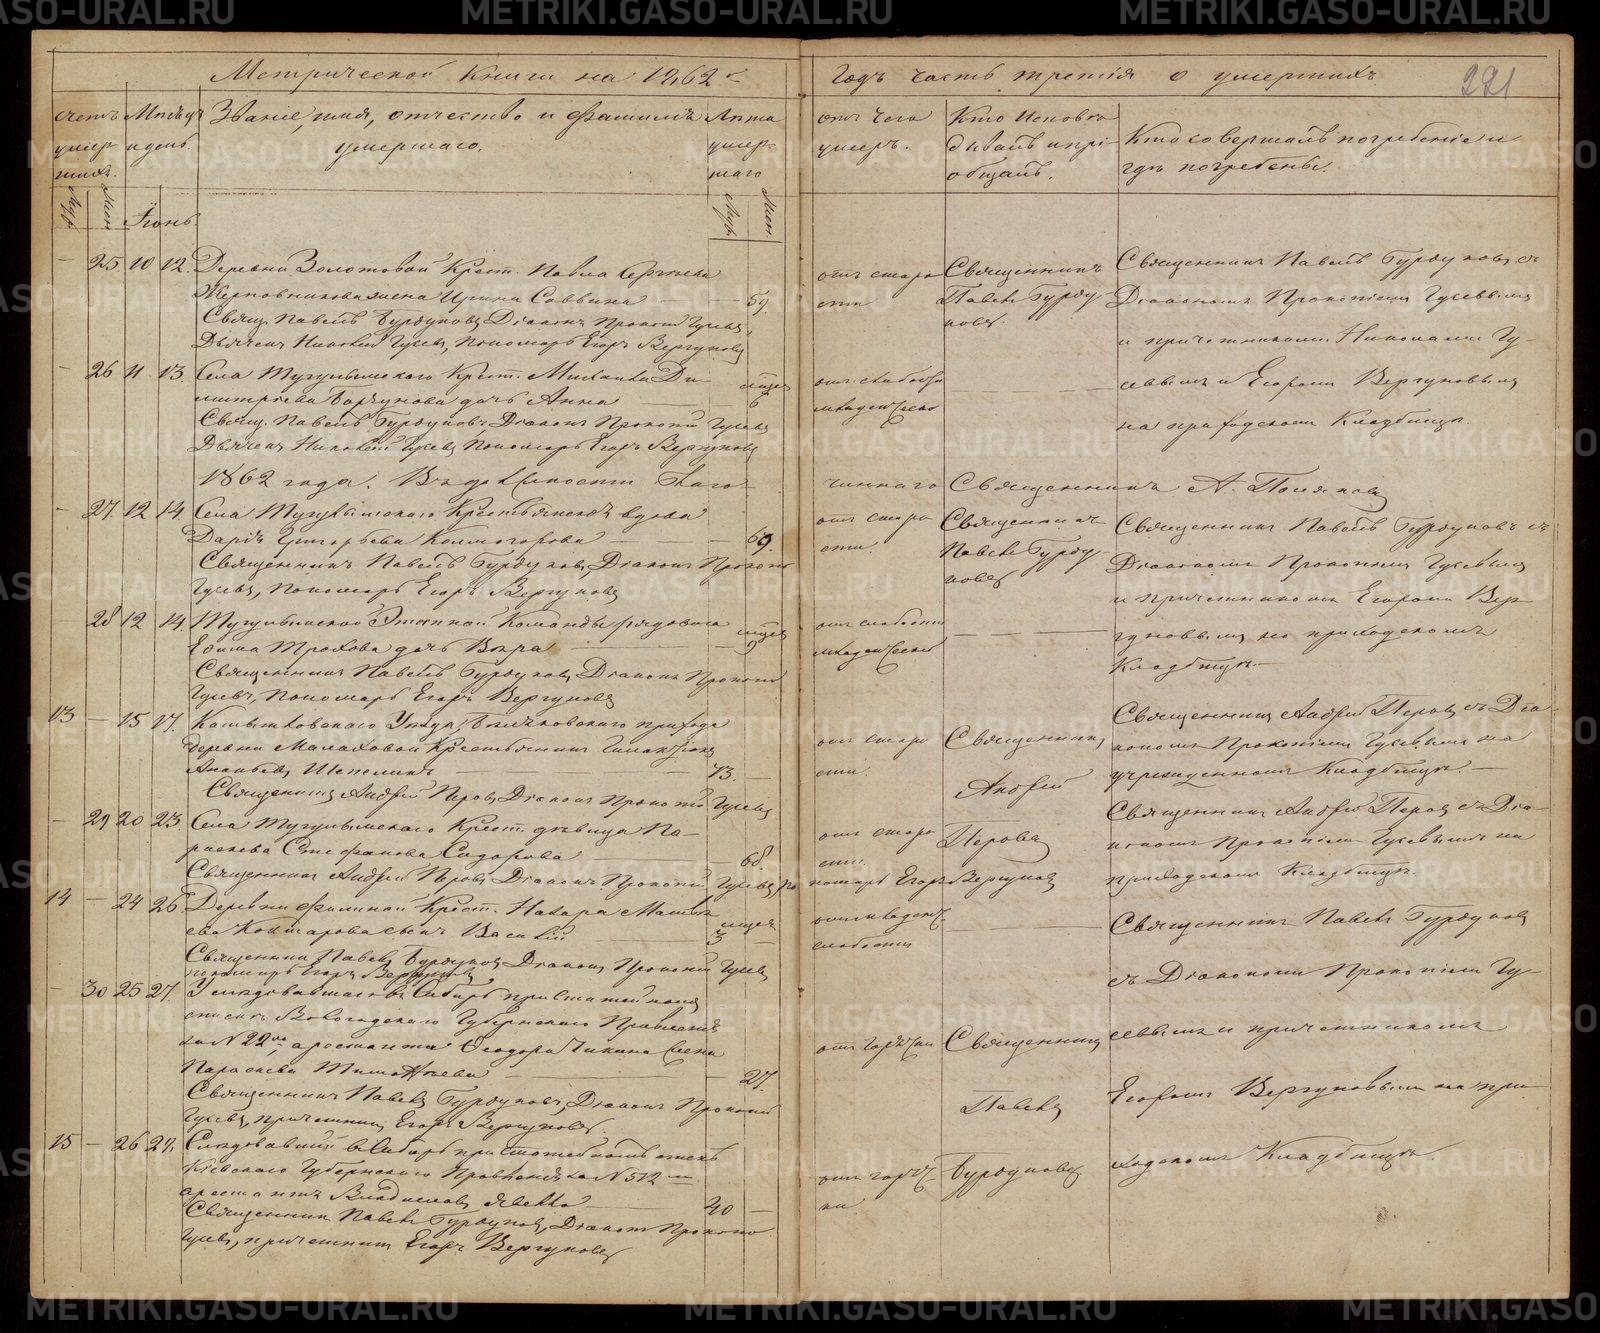 Метрической книги на 1862й годъ часть третія о умершихъ.
221
счетъ умершихъ.
Муж. Жен.
Мѣсяцъ и день.
Званіе, имя, отчество и фамилія умершаго.
Лѣта умершаго
Муж. Жен.
отъ чего умеръ.
Кто исповѣдывалъ и пріобщалъ.
Кто совершалъ погребеніе и гдѣ погребены.
Іюнь.
— 25 10 12. Деревни Золотовой Крест. Павла
жена Ирина Саввина — 59.
Свящ. Павелъ Бурдуковъ, Діаконъ Прокопій Гусевъ,
Дьячекъ Николай Гусевъ, Пономарь Егоръ Вергуновъ
отъ старости
Священникъ Павелъ Бурдуковъ.
Священникъ Павелъ Бурдуковъ съ
Діакономъ Прокопіемъ Гусевымъ
и причетниками Николаемъ Гу-
севымъ и Егоромъ Вергуновымъ
на приходскомъ Кладбищѣ.
— 26 11 13. Села Тугулымскаго Крест. Михаила Ди-
митріева дочь Анна — 6
Свящ. Павелъ Бурдуковъ, Діаконъ Прокопій Гусевъ
Дьячекъ Николай Гусевъ, Пономарь Егоръ Вергуновъ
отъ слабости младенческой
1862 года. Въ должности Благочиннаго Священникъ А. Поляковъ
— 27. 12 14. Села Тугулымскаго Крестьянская вдова
Дарія Григорьева Колмогорова — 69.
Священникъ Павелъ Бурдуковъ, Діаконъ Прокопій
Гусевъ, Пономарь Егоръ Вергуновъ
отъ старости.
Священникъ Павелъ Бурдуковъ
Священникъ Павелъ Бурдуковъ съ
Діакономъ Прокопіемъ Гусевымъ
и причетникомъ Егоромъ Вер-
гуновымъ на приходскомъ
Кладбищѣ.—
28 12 14. Тугулымской Этапной Команды рядоваго
дочь Вѣра — 9
Священникъ Павелъ Бурдуковъ, Діаконъ Прокопій
Гусевъ, Пономарь Егоръ Вергуновъ
отъ слабости младенческой
13 — 15 17. Камышловскаго Уѣзда, прихода
деревни Малаховой Крестьянинъ
Ананьевъ Шепелинъ — 73. —
Священникъ Андрей Перовъ, Діаконъ Прокопій Гусевъ
отъ старости.
Священникъ Андрей Перовъ
Священникъ Андрей Перовъ съ Діа-
кономъ Прокопіемъ Гусевымъ на
учрежденномъ Кладбищѣ.—
— 29 20 23 Села Тугулымскаго Крест. дѣвица Па-
раскева Стефанова Сидорова — 68
Священникъ Андрей Перовъ, Діаконъ Прокопій Гусевъ, пономарь Егоръ Вергуновъ
отъ старости.
Священникъ Андрей Перовъ съ Діа-
кономъ Прокопіемъ Гусевымъ на
приходскомъ Кладбищѣ.
14 — 24 26 Деревни Филиной Крест. Назара
сынъ Василій — 3 —
Священникъ Павелъ Бурдуковъ, Діаконъ Прокопій Гусевъ
пономарь Егоръ Вергуновъ
отъ младенч. слабости
Священникъ Павелъ Бурдуковъ
съ Діакономъ Прокопіемъ Гу-
севымъ и причетникомъ
Егоромъ Вергуновымъ на при-
ходскомъ Кладбищѣ.
— 30 25 27. въ Сибирь при статейномъ
спискѣ Вологодскаго Губернскаго Правленія
за №22, арестанта Ѳеодора жена
Параскева — 27.
Священникъ Павелъ Бурдуковъ, Діаконъ Прокопій
Гусевъ, причетникъ Егоръ Вергуновъ.
отъ горячки
Священникъ Павелъ Бурдуковъ
15 — 26 29. Слѣдовавшій въ Сибирь при статейномъ спискѣ
Кіевскаго Губернскаго Правленія за №512
арестантъ Владиславъ — 40 —
Священникъ Павелъ Бурдуковъ, Діаконъ Прокопій
Гусевъ, причетникъ Егоръ Вергуновъ
отъ горячки
METRIKI.GASO-URAL.RU